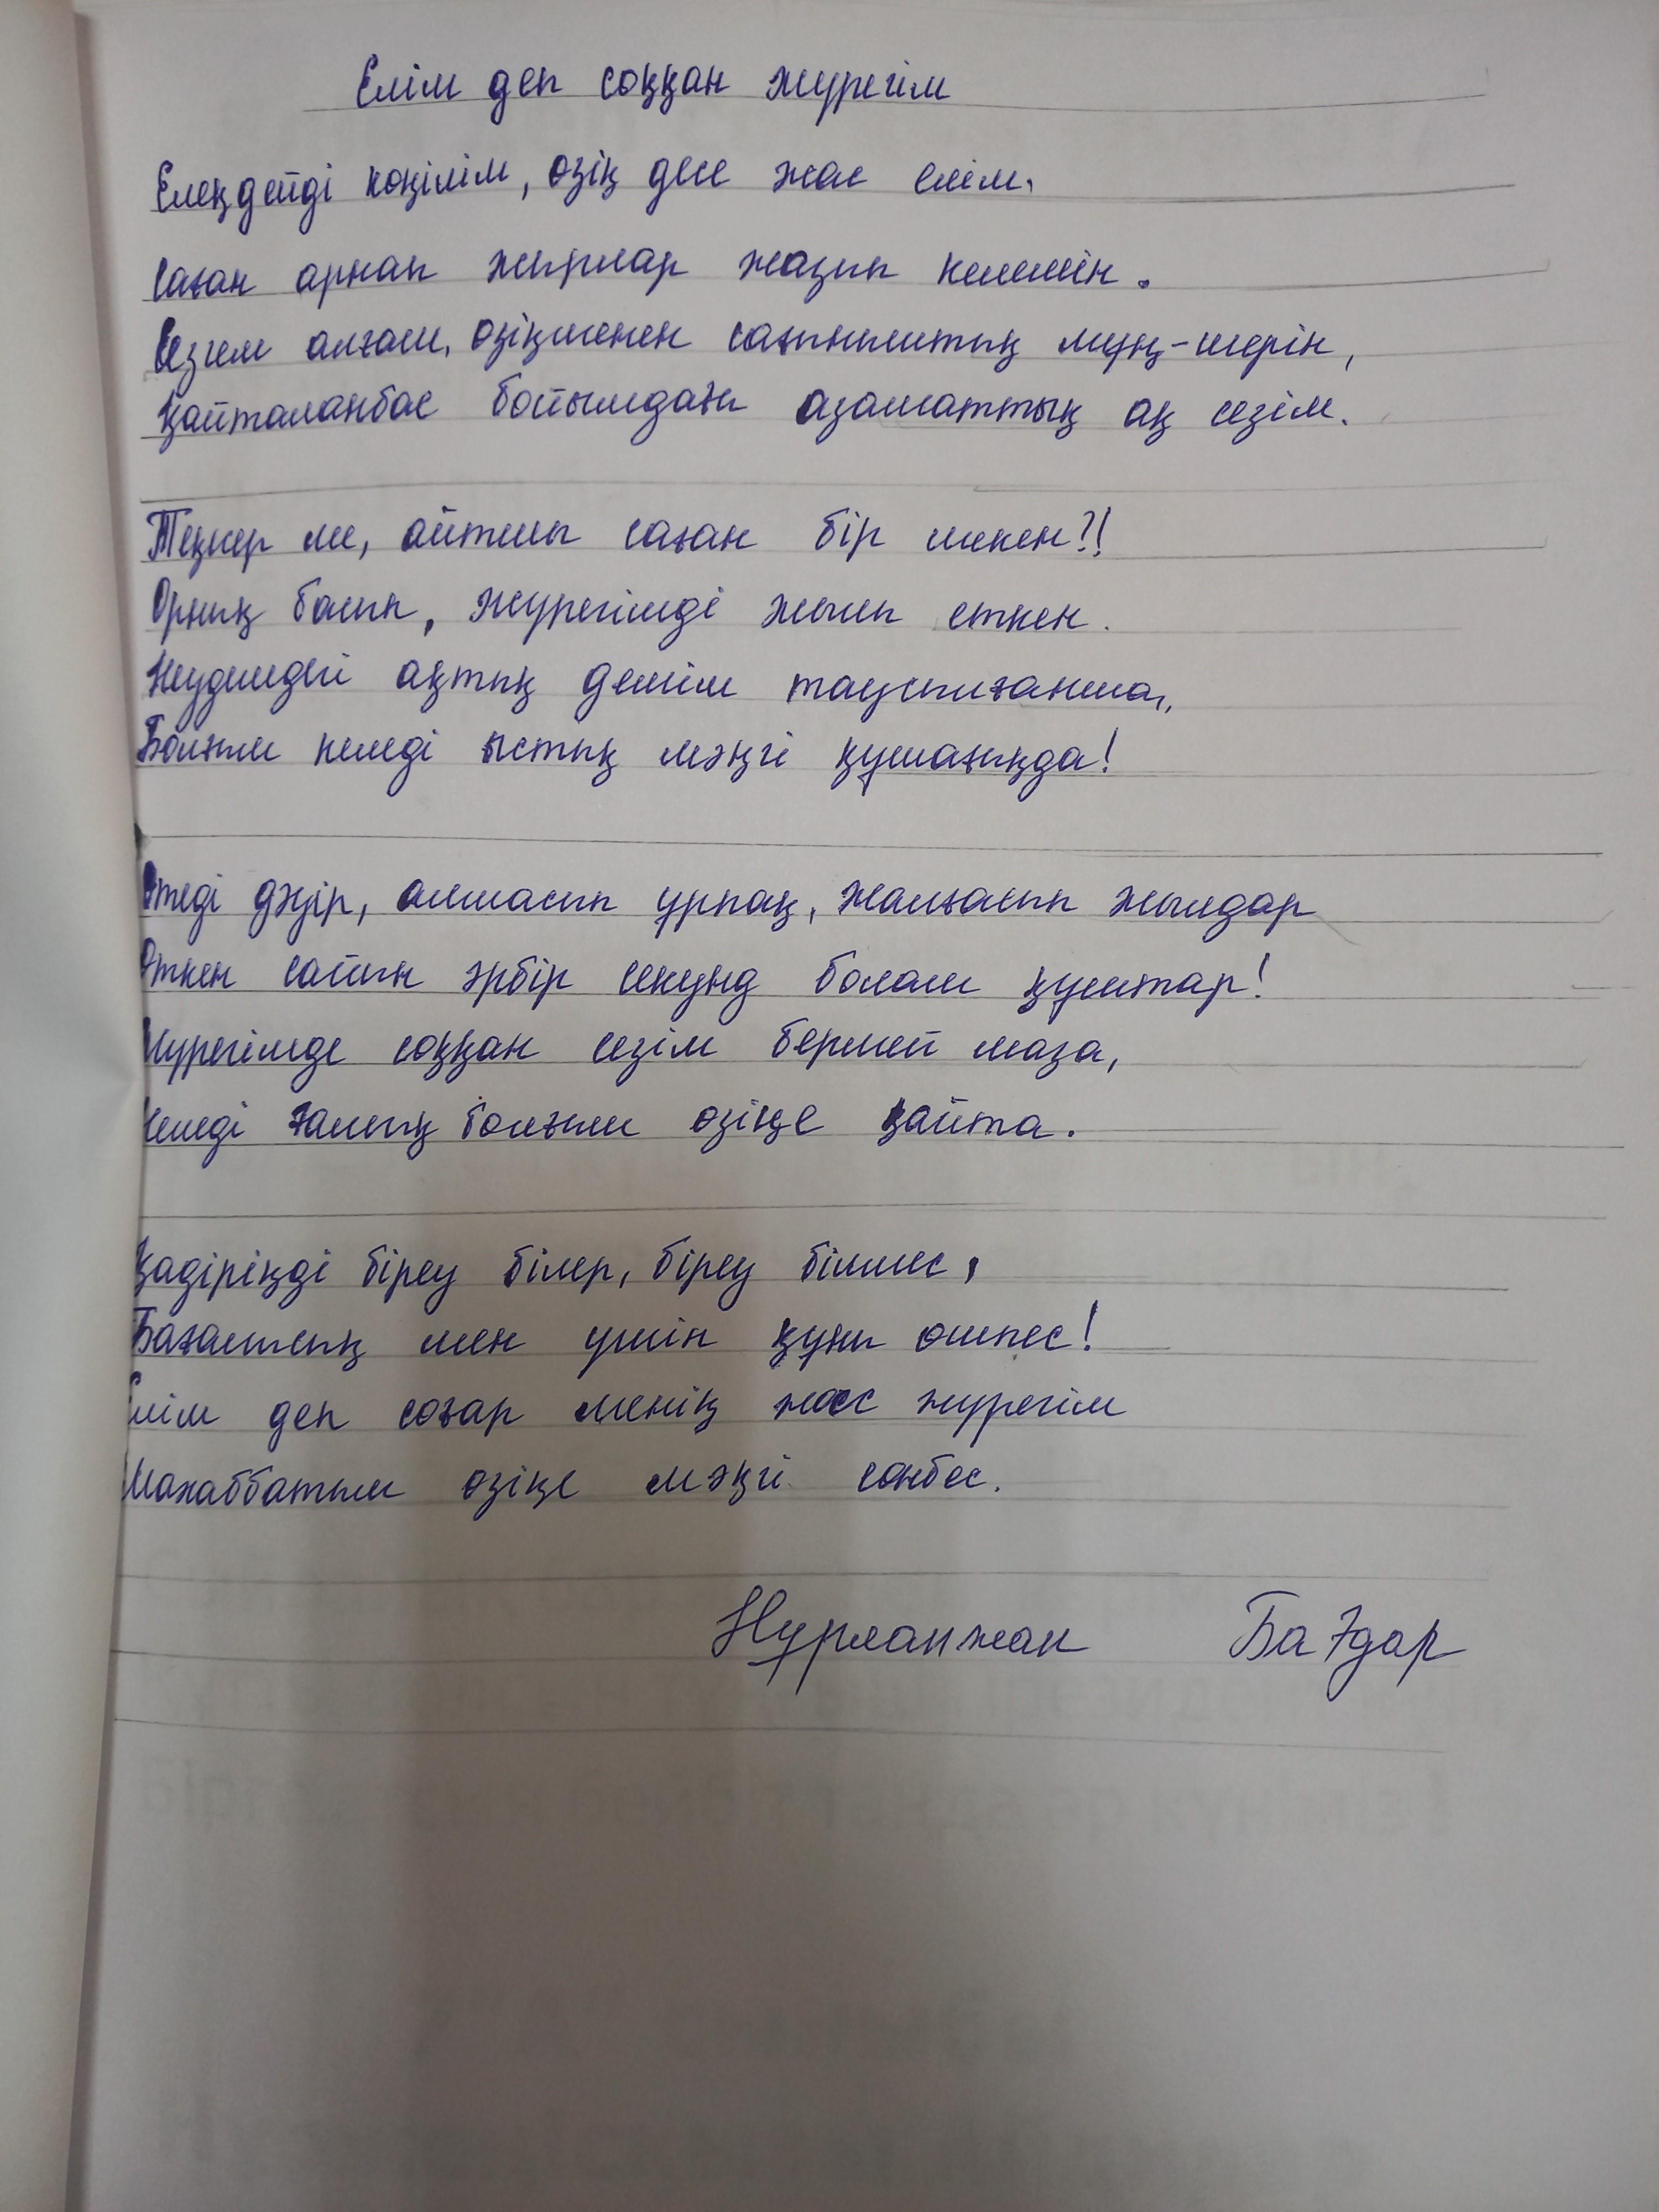 Елім деп соққан жүрегім
Елеңдейді көңілім, өзің десе жас елім,
Саған арнап жырлар жазып келемін.
Сезем алғаш, өзіңменен сағыныштың мұң-шерін,
Қайталанбас бойымдағы азаматтық ақ сезім.
Теңкер ме, айтшы саған бір мекен?!
Орның бөлып, жүрегімді жылы еткен.
Кеудемдегі ақтық демім таусылғанша,
Болғым келеді ыстық мәңгі құшағыңда!
Өтеді дәуір, алмасып ұрпақ, жалғасып жылдар
Өткен сайын әрбір секунд болам құштар!
Жүрегімде соққан сезім бермей маза,
Келеді ғашық болғым өзіңе қайта.
Қадіріңді біреу білер, біреу білмес,
Бағалысың мен үшін құны өшпес!
Елім деп соғар менің жас жүрегім
Махаббатым өзіңе мәңгі сөнбес.
Нұрланжан Бағдар